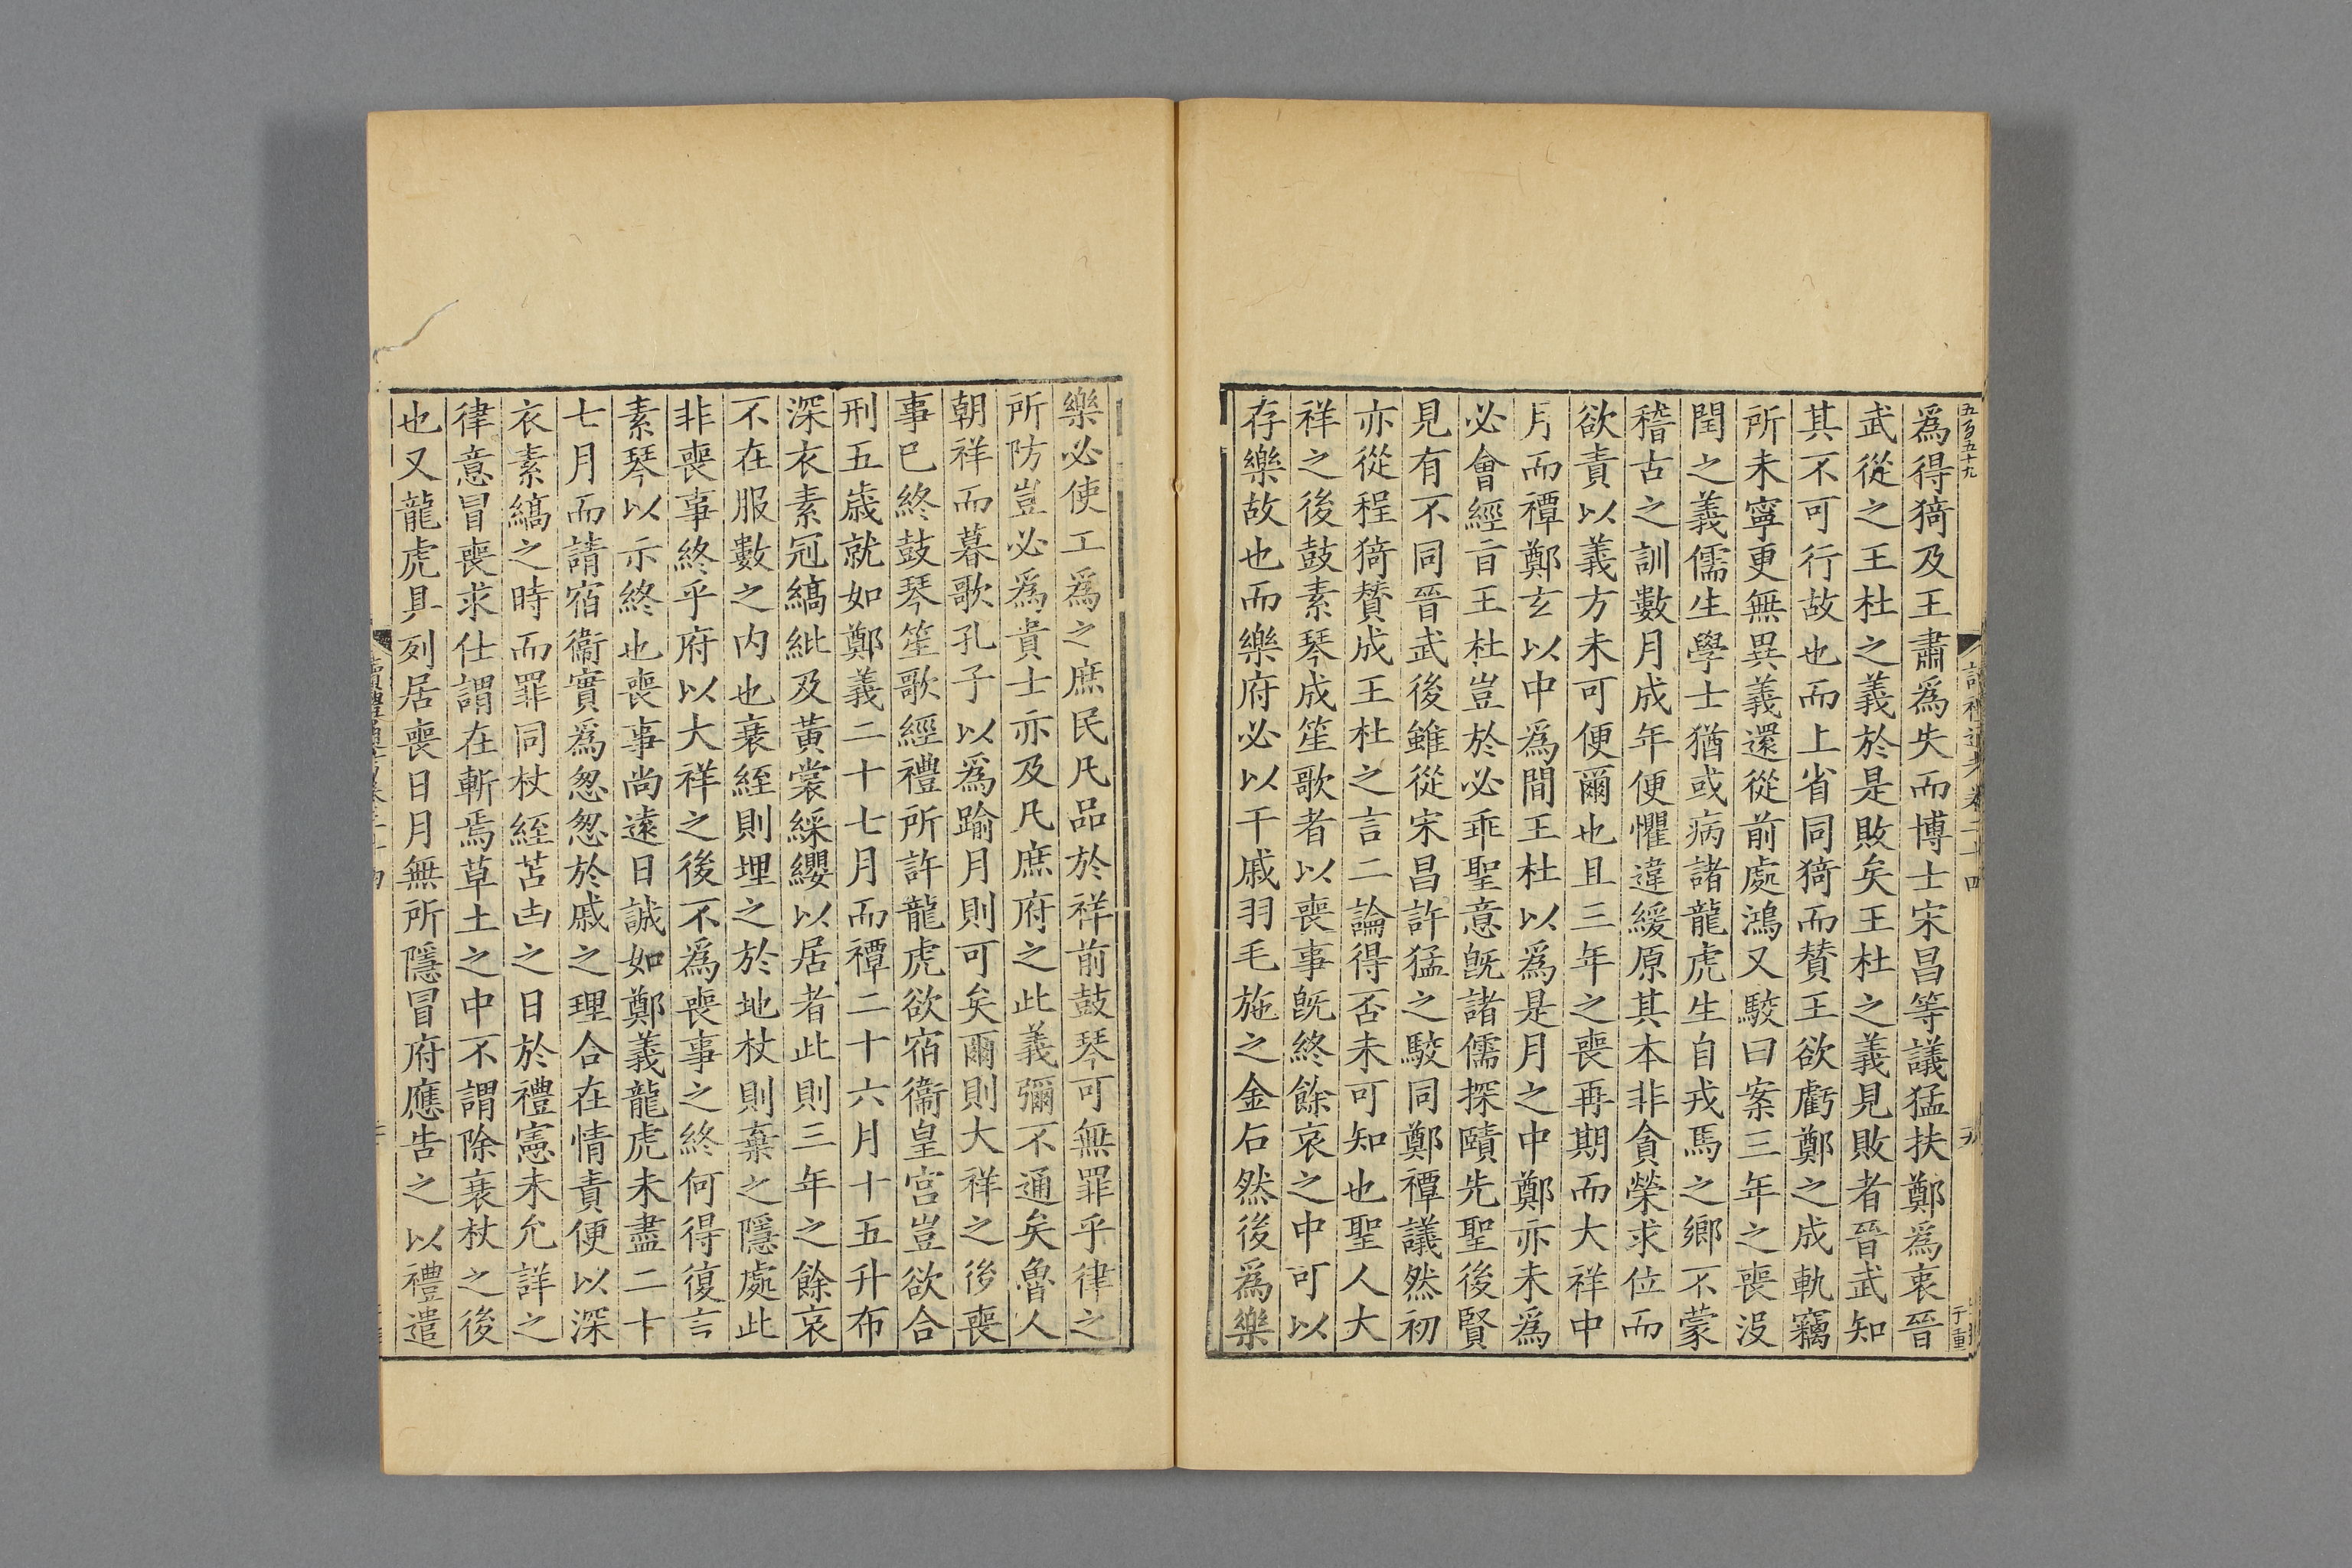 五百五十九
爲得猗及王肅爲失而博士宋昌等議猛扶鄭爲衷晉
武從之王杜之義於是敗矣王杜之義見敗者晉武知
其不可行故也而上省同猗而贊王欲虧鄭之成軌竊
所未寧更無異義還從前處鴻又駮曰案三年之喪沒
閏之義儒生學士猶或病諸龍虎生自戎馬之鄉不蒙
稽古之訓數月成年便懼違緩原其本非貪榮求位而
欲責以義方未可便爾也且三年之喪再期而大祥中
月而禫鄭玄以中爲間王杜以爲是月之中鄭亦未爲
必會經㫖王杜豈於必乖聖意旣諸儒探賾先聖後賢
見有不同晉武後雖從宋昌許猛之駮同鄭禫議然初
亦從程猗贊成王杜之言二論得否未可知也聖人大
祥之後鼓素琴成笙歌者以喪事旣終餘哀之中可以
存樂故也而樂府必以干戚羽毛施之金石然後爲樂
樂必使工爲之庶民凡品於祥前鼓琴可無罪乎律之
所防豈必爲貴士亦及凡庶府之此義彌不通矣魯人
朝祥而暮歌孔子以爲踰月則可矣爾則大祥之後喪
事已終鼓琴笙歌經禮所許龍虎欲宿衞皇宮豈欲合
刑五歲就如鄭義二十七月而禫二十六月十五升布
深衣素冠縞紕及黃裳綵纓以居者此則三年之餘哀
不在服數之內也衰絰則埋之於地杖則棄之隱處此
非喪事終乎府以大祥之後不爲喪事之終何得復言
素琴以示終也喪事尚遠日誠如鄭義龍虎未盡二十
七月而請宿衞實爲忽忽於戚之理合在情責便以深
衣素縞之時而罪同杖絰苫凷之日於禮憲未允詳之
律意冒喪求仕謂在斬焉草土之中不謂除衰杖之後
也又龍虎具列居喪日月無所隱冒府應告之以禮遣